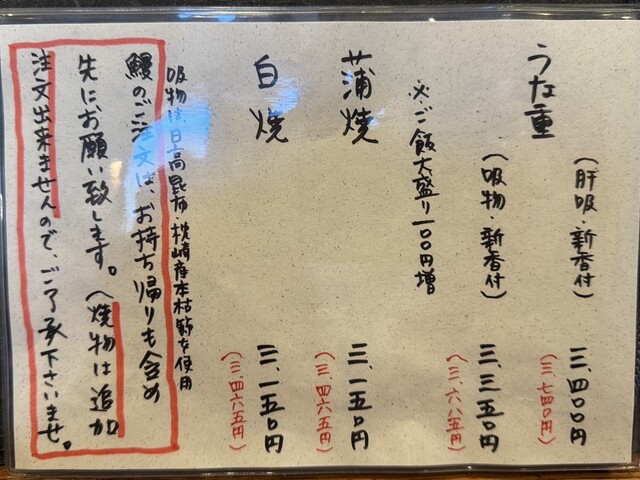 うな重
(肝吸・新香付) 三、四〇〇円
(三、七四〇円)
(吸物・新香付) 三、三五〇円
(三、六八五円)
※ご飯大盛り一〇〇円増
蒲焼 三、一五〇円
(三、四六五円)
白焼 三、一五〇円
(三、四六五円)
吸物は、日高昆布・枕崎産本枯節を使用
鰻のご注文は、お持ち帰りも含め
先にお願い致します。(焼物は追加
注文出来ませんので、ご了承下さいませ。